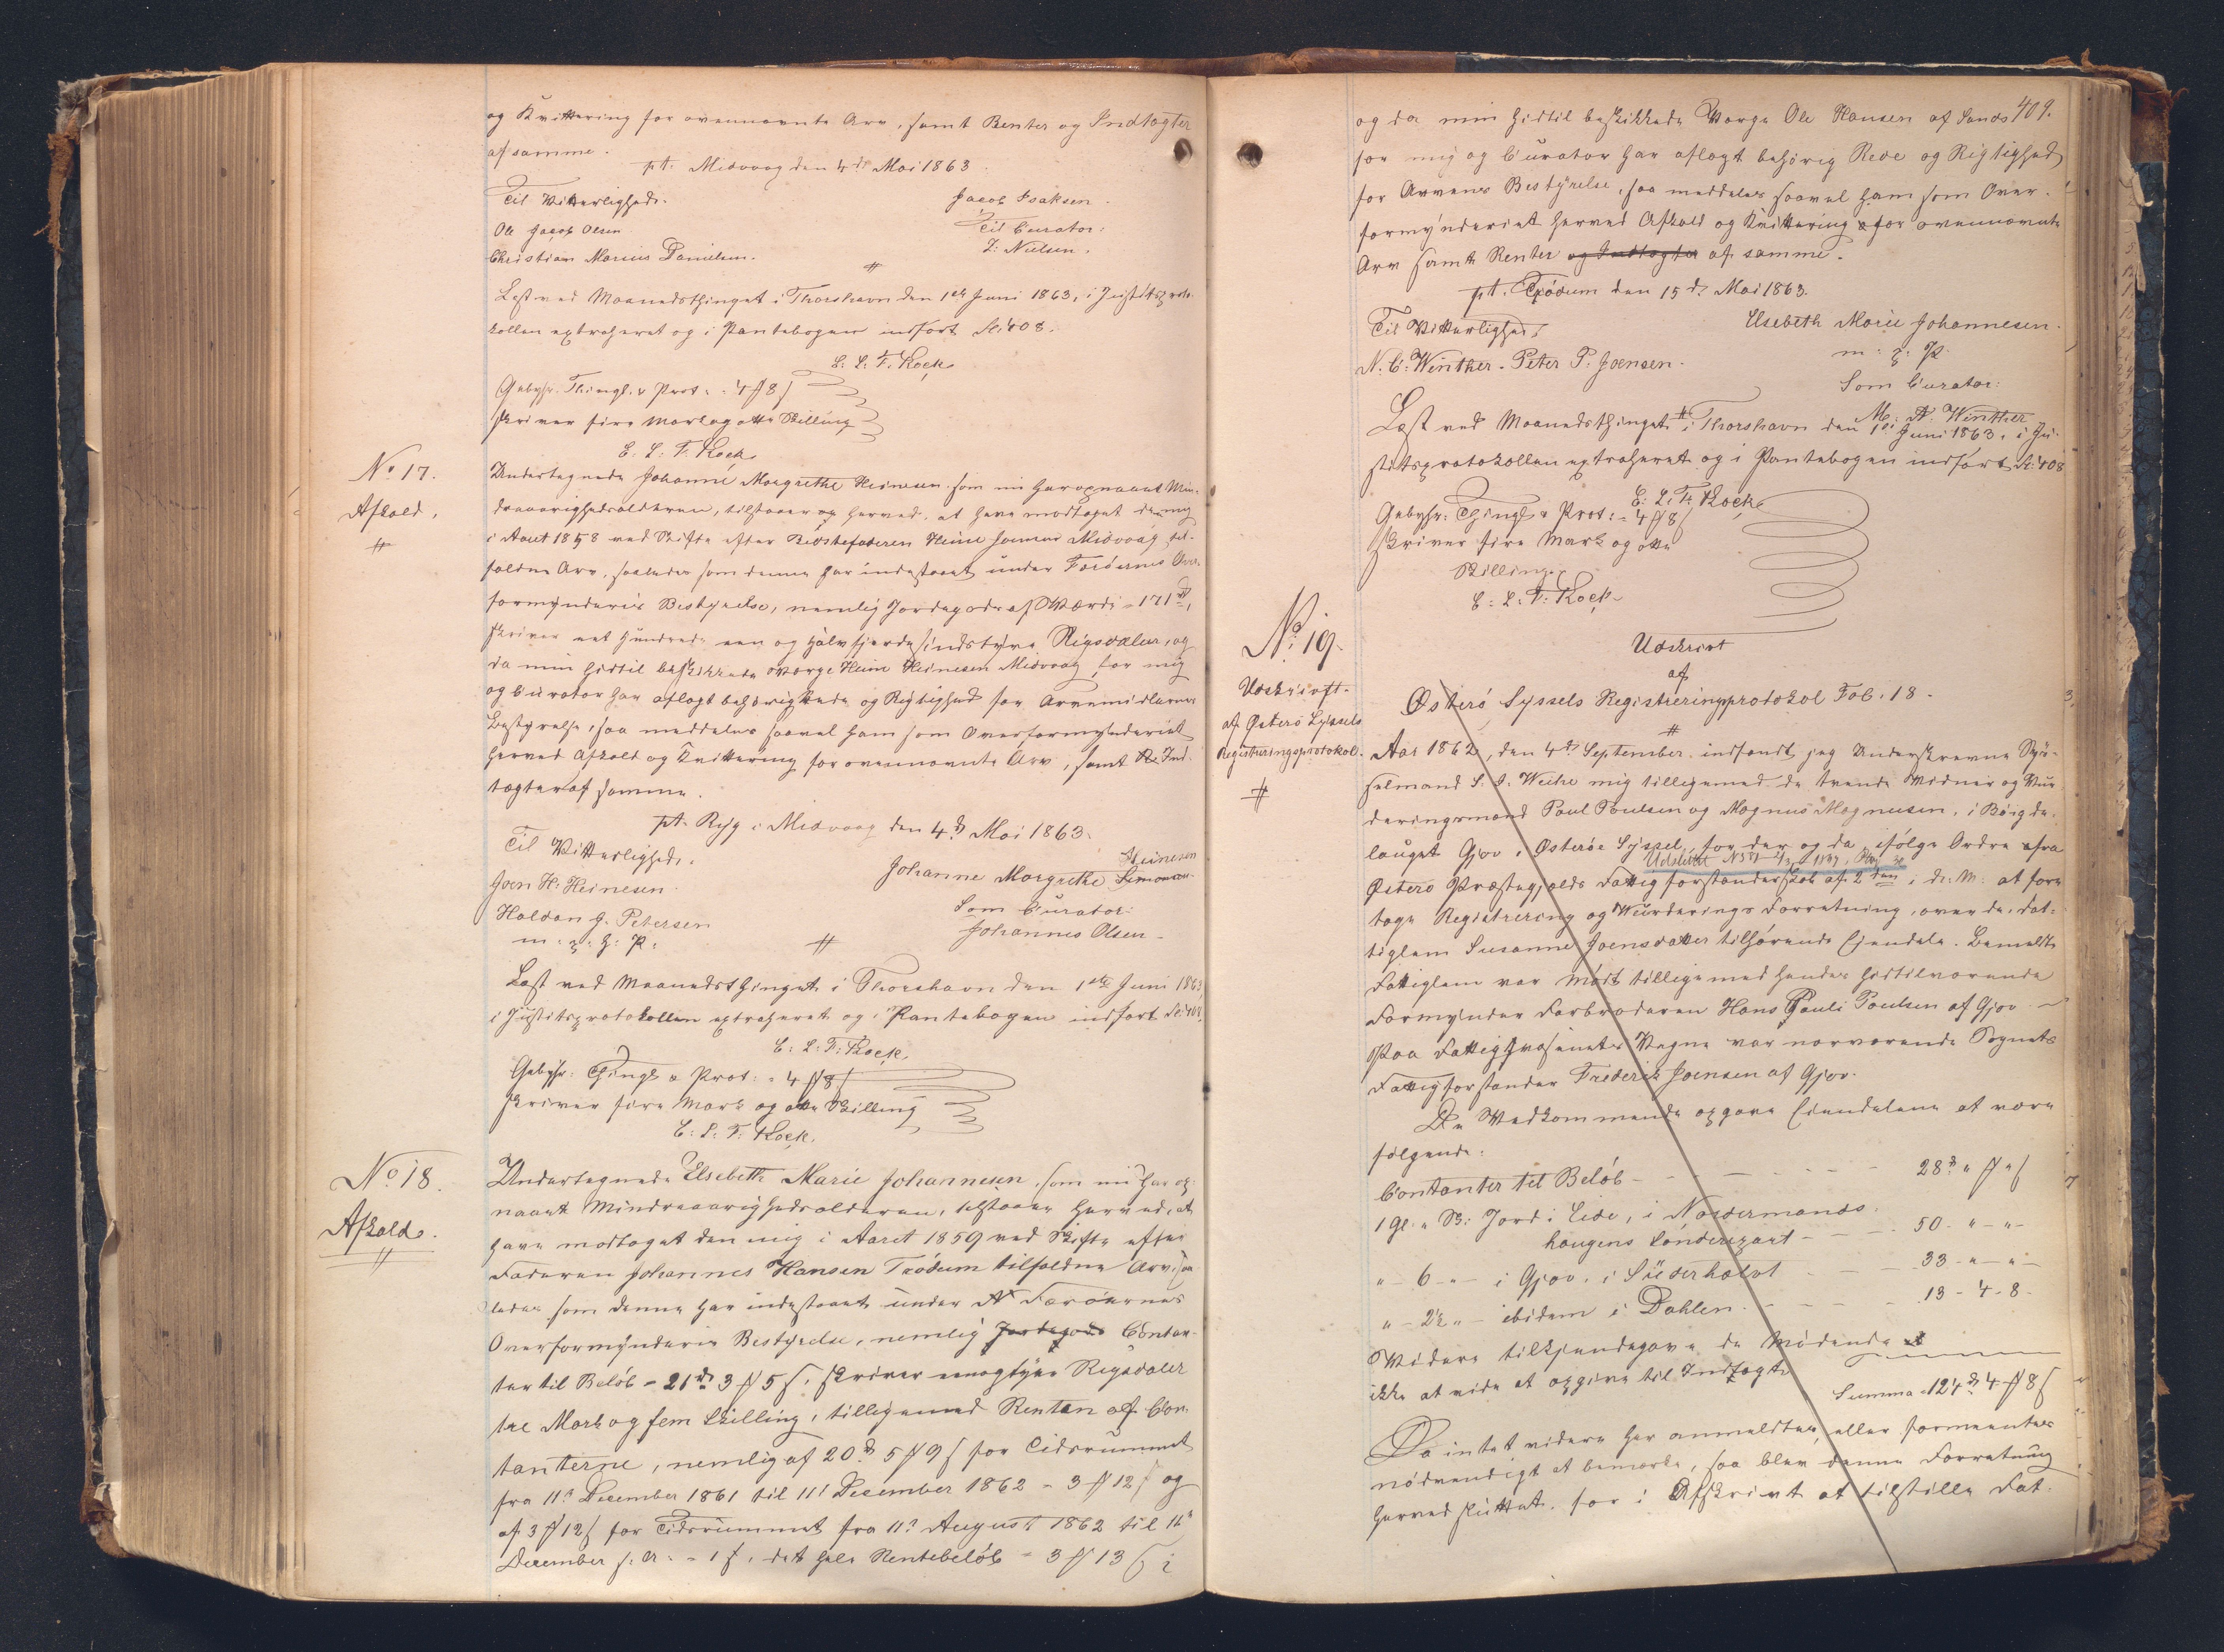 og Kvittering for ovennævnte Arv, samt Renter og Indtægter
af samme.
pt. Midvaag den 4de Mai 1863.
Til Vitterlighed. Jacob Isaksen.
Ole Jacob Olsen Til Curator:
Christian Marius Danielsen. Z: Nielsen.
Læst ved Maanedsthinget i Thorshavn den 1ste Juni 1863, i Justitsproto-
kollen extraheret og i Pantebogen indført Fol: 408.
E: L: F. Kock
Gebyhr. Thingl. & Prot: = 4 # 8 ß
skriver fire Mark og otte Skilling
E: L: F. Kock
No 17.
Afkald.
Undertegnede Johanne Margrethe Heinesen som nu har opnaaet Min-
dreaarighedsalderen, tilstaaer herved, at have modtaget den mig
i Aaret 1858 ved Skifte efter Bedstefaderen Heine Joensen Midvaag til-
faldne Arv, saaledes som denne har indestaaet under Færøernes Over-
formynderies Bestyrelse, nemlig Jordegods af Værdi = 171 rd,
skriver eet Hundrede een og halvfjerdesindstyve Rigsdaler, og
da min hidtil beskikkede Værge Heine Heinesen Midvaag for mig
og Curator har aflagt behørig Rede og Rigtighed for Arvemidlernes
Bestyrelse, saa meddeles saavel ham som Overformynderiet
herved Afkald og Kvittering for ovennævnte Arv, samt Re Ind-
tægter af samme.
pt. Ryg i Midvaag den 4de Mai 1863.
Til Vitterlighed. Heinesen
Joen H: Heinesen. Johanne Margrethe Simonsen
Haldan J. Petersen Som Curator:
m: z: H: P: Johannes Olsen
Læst ved Maanedsthinget i Thorshavn den 1ste Juni 1863
i Justitsprotokollen extraheret og i Pantebogen indført Fol: 408.
E: L: F: Kock
Gebyhr: Thingl & Prot: = 4 # 8 ß
skriver fire Mark og otte Skilling
E: L: F: Kock.
No 18.
Afkald.
Undertegnede Elsebeth Marie Johannesen, som nu har op-
naaet Mindreaarighedsalderen, tilstaaer herved, at
have modtaget den mig i Aaret 1859 ved Skifte efter
Faderen Johannes Hansen Trödum tilfaldne Arv, saa-
ledes som denne har indestaaet under Færøernes
Overformynderies Bestyrelse, nemlig Jordegods Contan-
ter til Beløb = 21 rd 3 # 5 ß, skriver eenogtyve Rigsdaler
tre Mark og fem Skilling, tilligemed Renten af Con-
tanterne, nemlig af 20 rd 5 # 9 ß for Tidsrummet
fra 11te December 1861 til 11te December 1862 = 3 # 12 ß og
af 3 # 12 ß for Tidsrummet fra 11te August 1862 til 11te
December s: A: = 1 ß, det hele Rentebeløb = 3 # 13 ß i
409.
og da min hidtil beskikkede Værge Ole Hansen af Sands
for mig og Curator har aflagt behørig Rede og Rigtighed
for Arvens Bestyrelse, saa meddeles saavel ham som Over-
formynderiet herved Afkald og Kvittering for ovennævnte
Arv samt Renter og Indtægter af samme.
pt. Trödum den 15de Mai 1863.
Til Vitterlighed, Elsebeth Marie Johannesen.
N. C. Winther. Peter P. Joensen. m: z: P.
Som Curator:
M: A. Winther
Læst ved Maanedsthinget i Thorshavn den 1ste Juni 1863, i Ju-
stitsprotokollen extraheret og i Pantebogen indført Fol: 408
E: L: F: Kock
Gebyhr: Thingl & Prot: = 4 # 8 ß
skriver fire Mark og otte
Skilling.
E: L: F: Kock
No 19.
Udskrift
af Østerø Syssels
Registreringsprotokol.
Udskrivt
af
Østerö Syssels Registreringsprotokol Fol. 18.
Aar 1862, den 4de September indfandt jeg Underskrevne Sys-
selmand S. A. Weihe mig tilligemed de tvende Vidner og Vur-
deringsmænd Poul Poulsen og Magnus Magnusen, i Bøigde-
lauget Gjov, Østerøe Syssel, for der og da ifølge Ordre fra
Udslettet
Østerö Præstegjelds Fattigforstanderskab af 2den d: M: at fore-
tage Registrering og Vurderings Forretning, over de, Fat-
tiglem Susanne Joensdatter tilhørende Eiendele. Bemeldte
Fattiglem var mødt tilligemed hendes hidtilværende
Formynder Farbroderen Hans Pauli Poulsen af Gjov
Paa Fattigvæsenets Vegne var nærværende Sognets
Fattigforstander Frederik Joensen af Gjov.
De Vedkommende opgave Eiendelene at være
følgende:
Contanter til Beløb 28 rd " # " ß
1 Gl. " Sk: Jord i Eide, i Nordermands-
haugens Sönderepart 50 - " - "
" - 6 - " - i Gjov, i Süderhalvt 33 - " - "
" - 2½ " - ibidem i Dahlen 13 - 4 - 8
Videre tilkjendegave de Mødende
ikke at vide at opgive til Indtægt
Summa = 124 rd 4 # 8 ß
Da intet videre her anmeldtes, eller formeentes
nødvendigt at bemærke, saa blev denne Forretning
herved sluttet, for i Afskrivt at tilstille Fat-